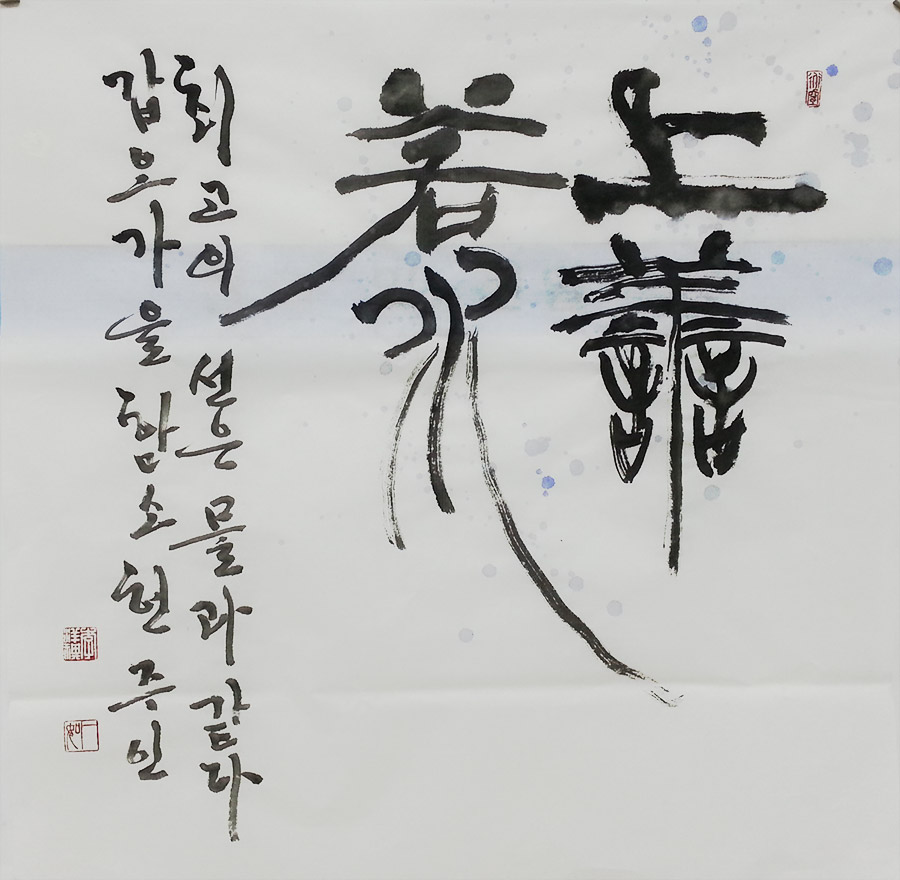 上善
若水
최고의 선은 물과 같다
갑오가을 함소헌주인
一如